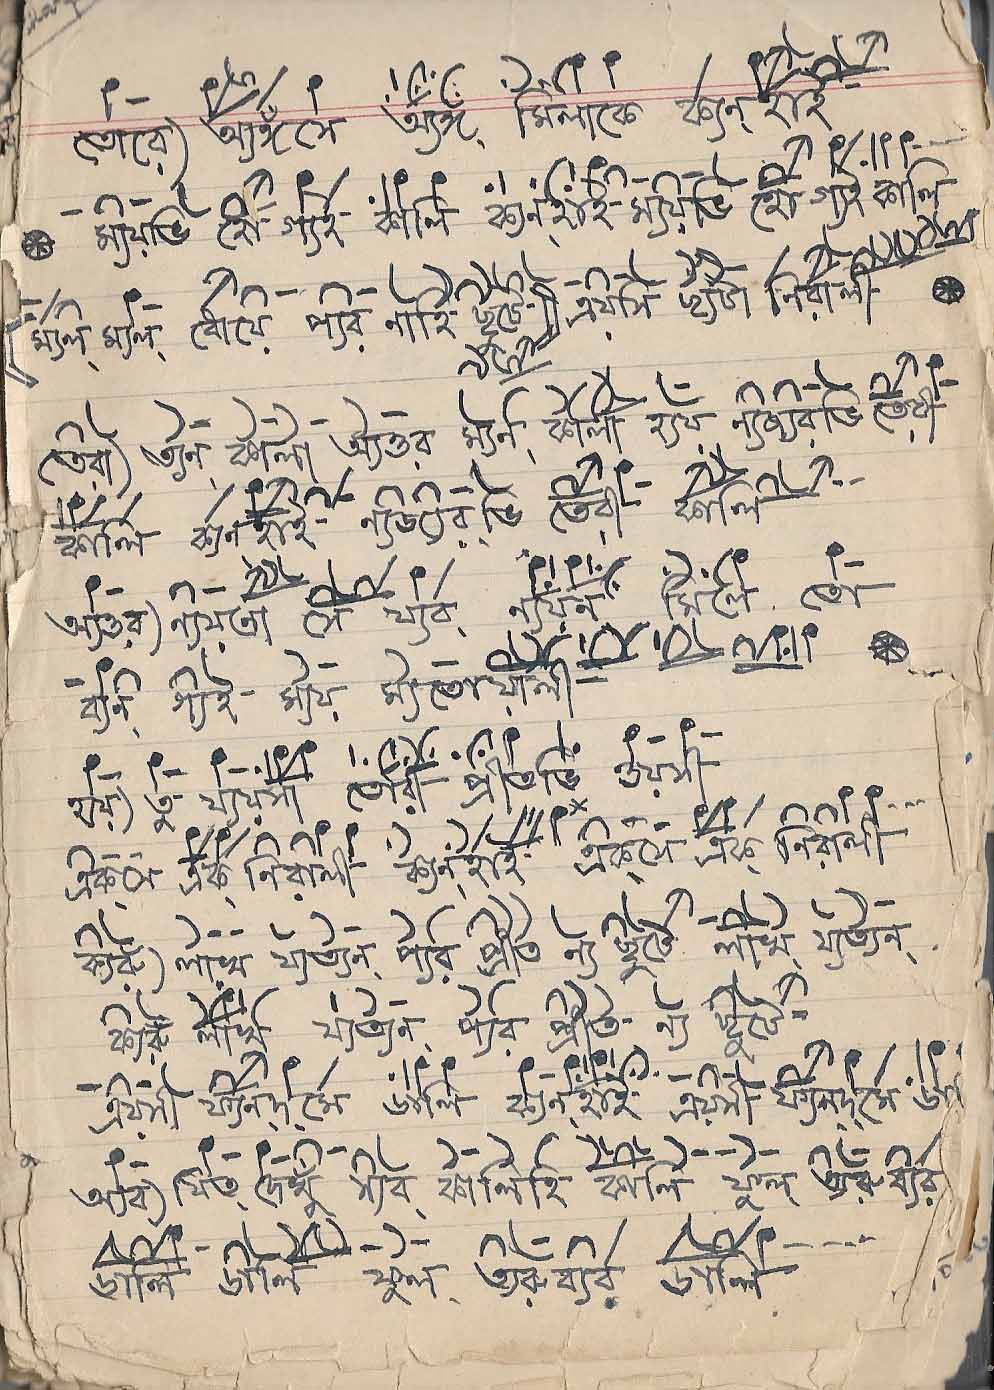 তোরে) অ্যঙ্গঁসে অ্যঙ্গ্ মিলাকে ক্যন্হাই
ম্যয়ভি হো গ্যই কালি ক্যনহাই ম্যয়ভি হো গ্যই কালি
ম্যল্ ম্যল্ ধোয়ে প্যর নাহি ছুটে) এয়সি ছ্যটা নিরালী
তেরা) ত্যন্ কালা অ্যওর ম্যন্ কালা হ্যয় ন্যজ্যরভি তেরী
কালি ক্যনহাই ন্যজ্যর্ভি তেরী কালি
অ্যওর) ন্যয়নো সে য্যব্ ন্যয়ন মিলে তো
ব্যন্ গ্যই ম্যয় ম্যতোয়ালী
হ্যয়) তু য্যয়সা তেরী প্রীতভি ওয়সী
এক্সে এক্ নিরালী ক্যন্হাই এক্সে এক্ নিরালী
ক্যরু) লাখ্ য্যত্যন্ প্যর প্রীত ন্য ছুটে লাখ্ য্যত্যন্
ক্যরু লাখ্ য্যত্যন্ প্যর প্রীত ন্য ছুটে
এয়সী ফ্যন্দ্মে ডালি ক্যন্হাই এয়সী ফ্যন্দ্মে ডালি
অ্যব) যিত্ দেখুঁ স্যব্ কালিহি কালি ফুল্ ত্যরুব্যর
ডালি ডালি ফুল্ ত্যরুব্যর ডালি